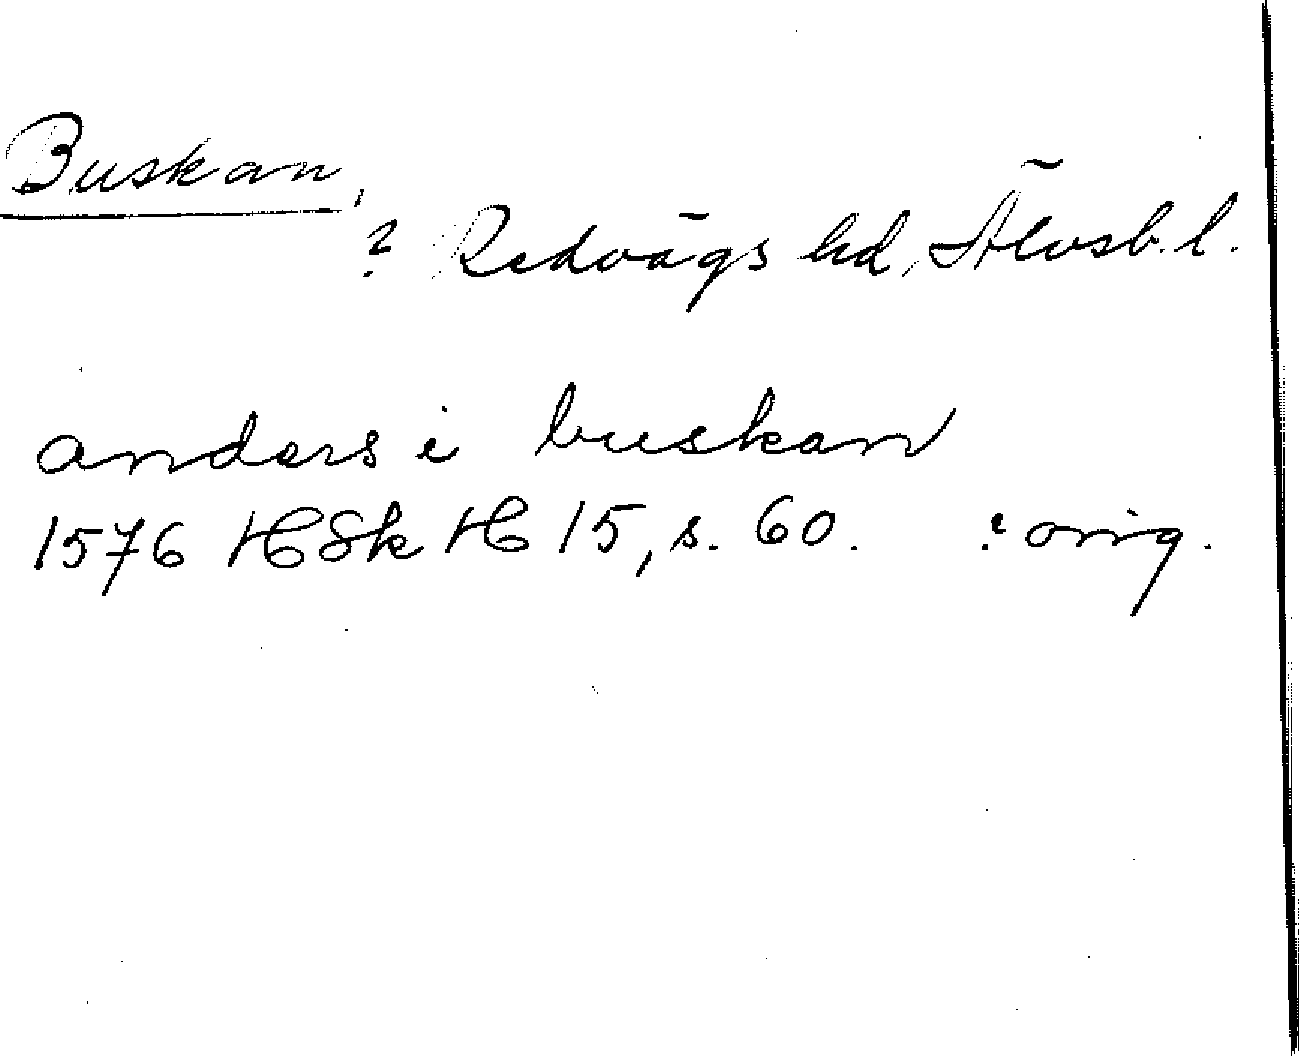 Buskan,
? Redvägs hd, Älvsb. l.
anders i buskan
1576 HSk H 15, s. 60. : orig.